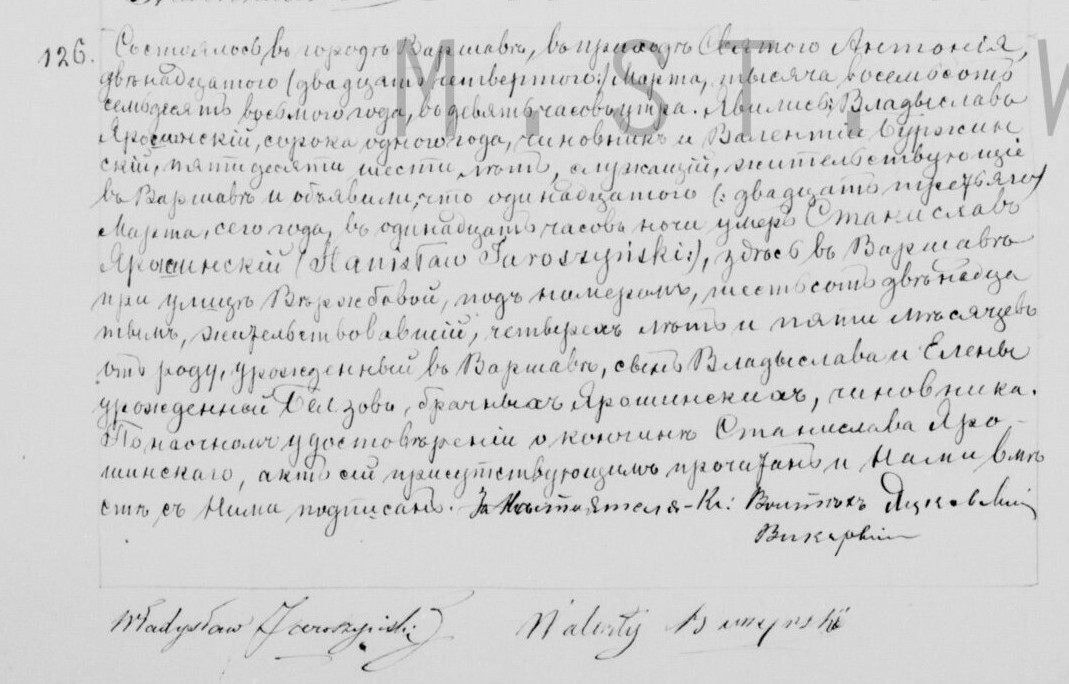 126.
Состоялось въ городѣ Варшавѣ, въ приходѣ Святого Антонія,
двѣнадцатого (двадцать четвертого:) Марта, тысяча восемьсотъ
семьдесятъ восьмого года, въ девять часовъ утра. Явились; Владыславъ
Ярошинскій, сорока одного года, чиновникъ и Валентій Буржин
скій, пятидесяти шести лѣтъ, служащій, жительствующіе
въ Варшавѣ и объявили, что одинадцатого (: двадцать третьяго)
Марта, сего года, въ одинадцать часовъ ночи умеръ Станиславъ
Ярошинскій (Stanisław Jaroszyński:), здѣсь въ Варшавѣ
при улицѣ Вѣржбовой, подъ номеромъ, шестьсотъ двѣнадца
тымъ, жительствовавшій, четырехъ лѣтъ и пяти мѣсяцевъ
отъ роду, урожденный въ Варшавѣ, сынъ Владыслава и Елены
урожденной Гелзовъ, брачныхъ Ярошинскихъ, чиновника.
По настномъ удостовѣреніи о кончинѣ Станислава Яро-
шинскаго, актъ сій присутствующимъ прочитанъ и Нами вмѣ
стѣ съ Ними подписанъ. За Настоятеля-Кс:
Викарвій
MST.W
Władysław Jaroszyński
Walenty Burzyński